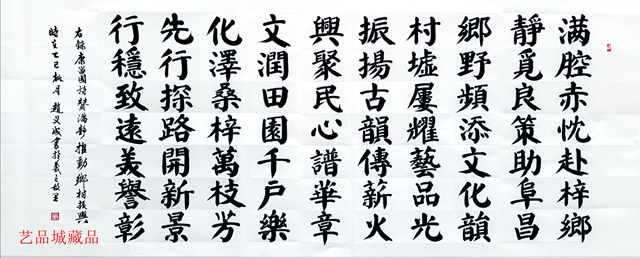 满腔赤忱赴梓鄉
靜覓良策助阜昌
鄉野頻添文化韻
村墟屢耀藝品光
振揚古韻傳薪火
興聚民心譜華章
文潤田園千戶樂
化澤桑梓萬枝芳
先行探路開新景
行穩致遠美譽彰
右錄唐苗國诗赞满静推動鄉村振興
時在乙巳秋月趙义成書
艺品城藏品